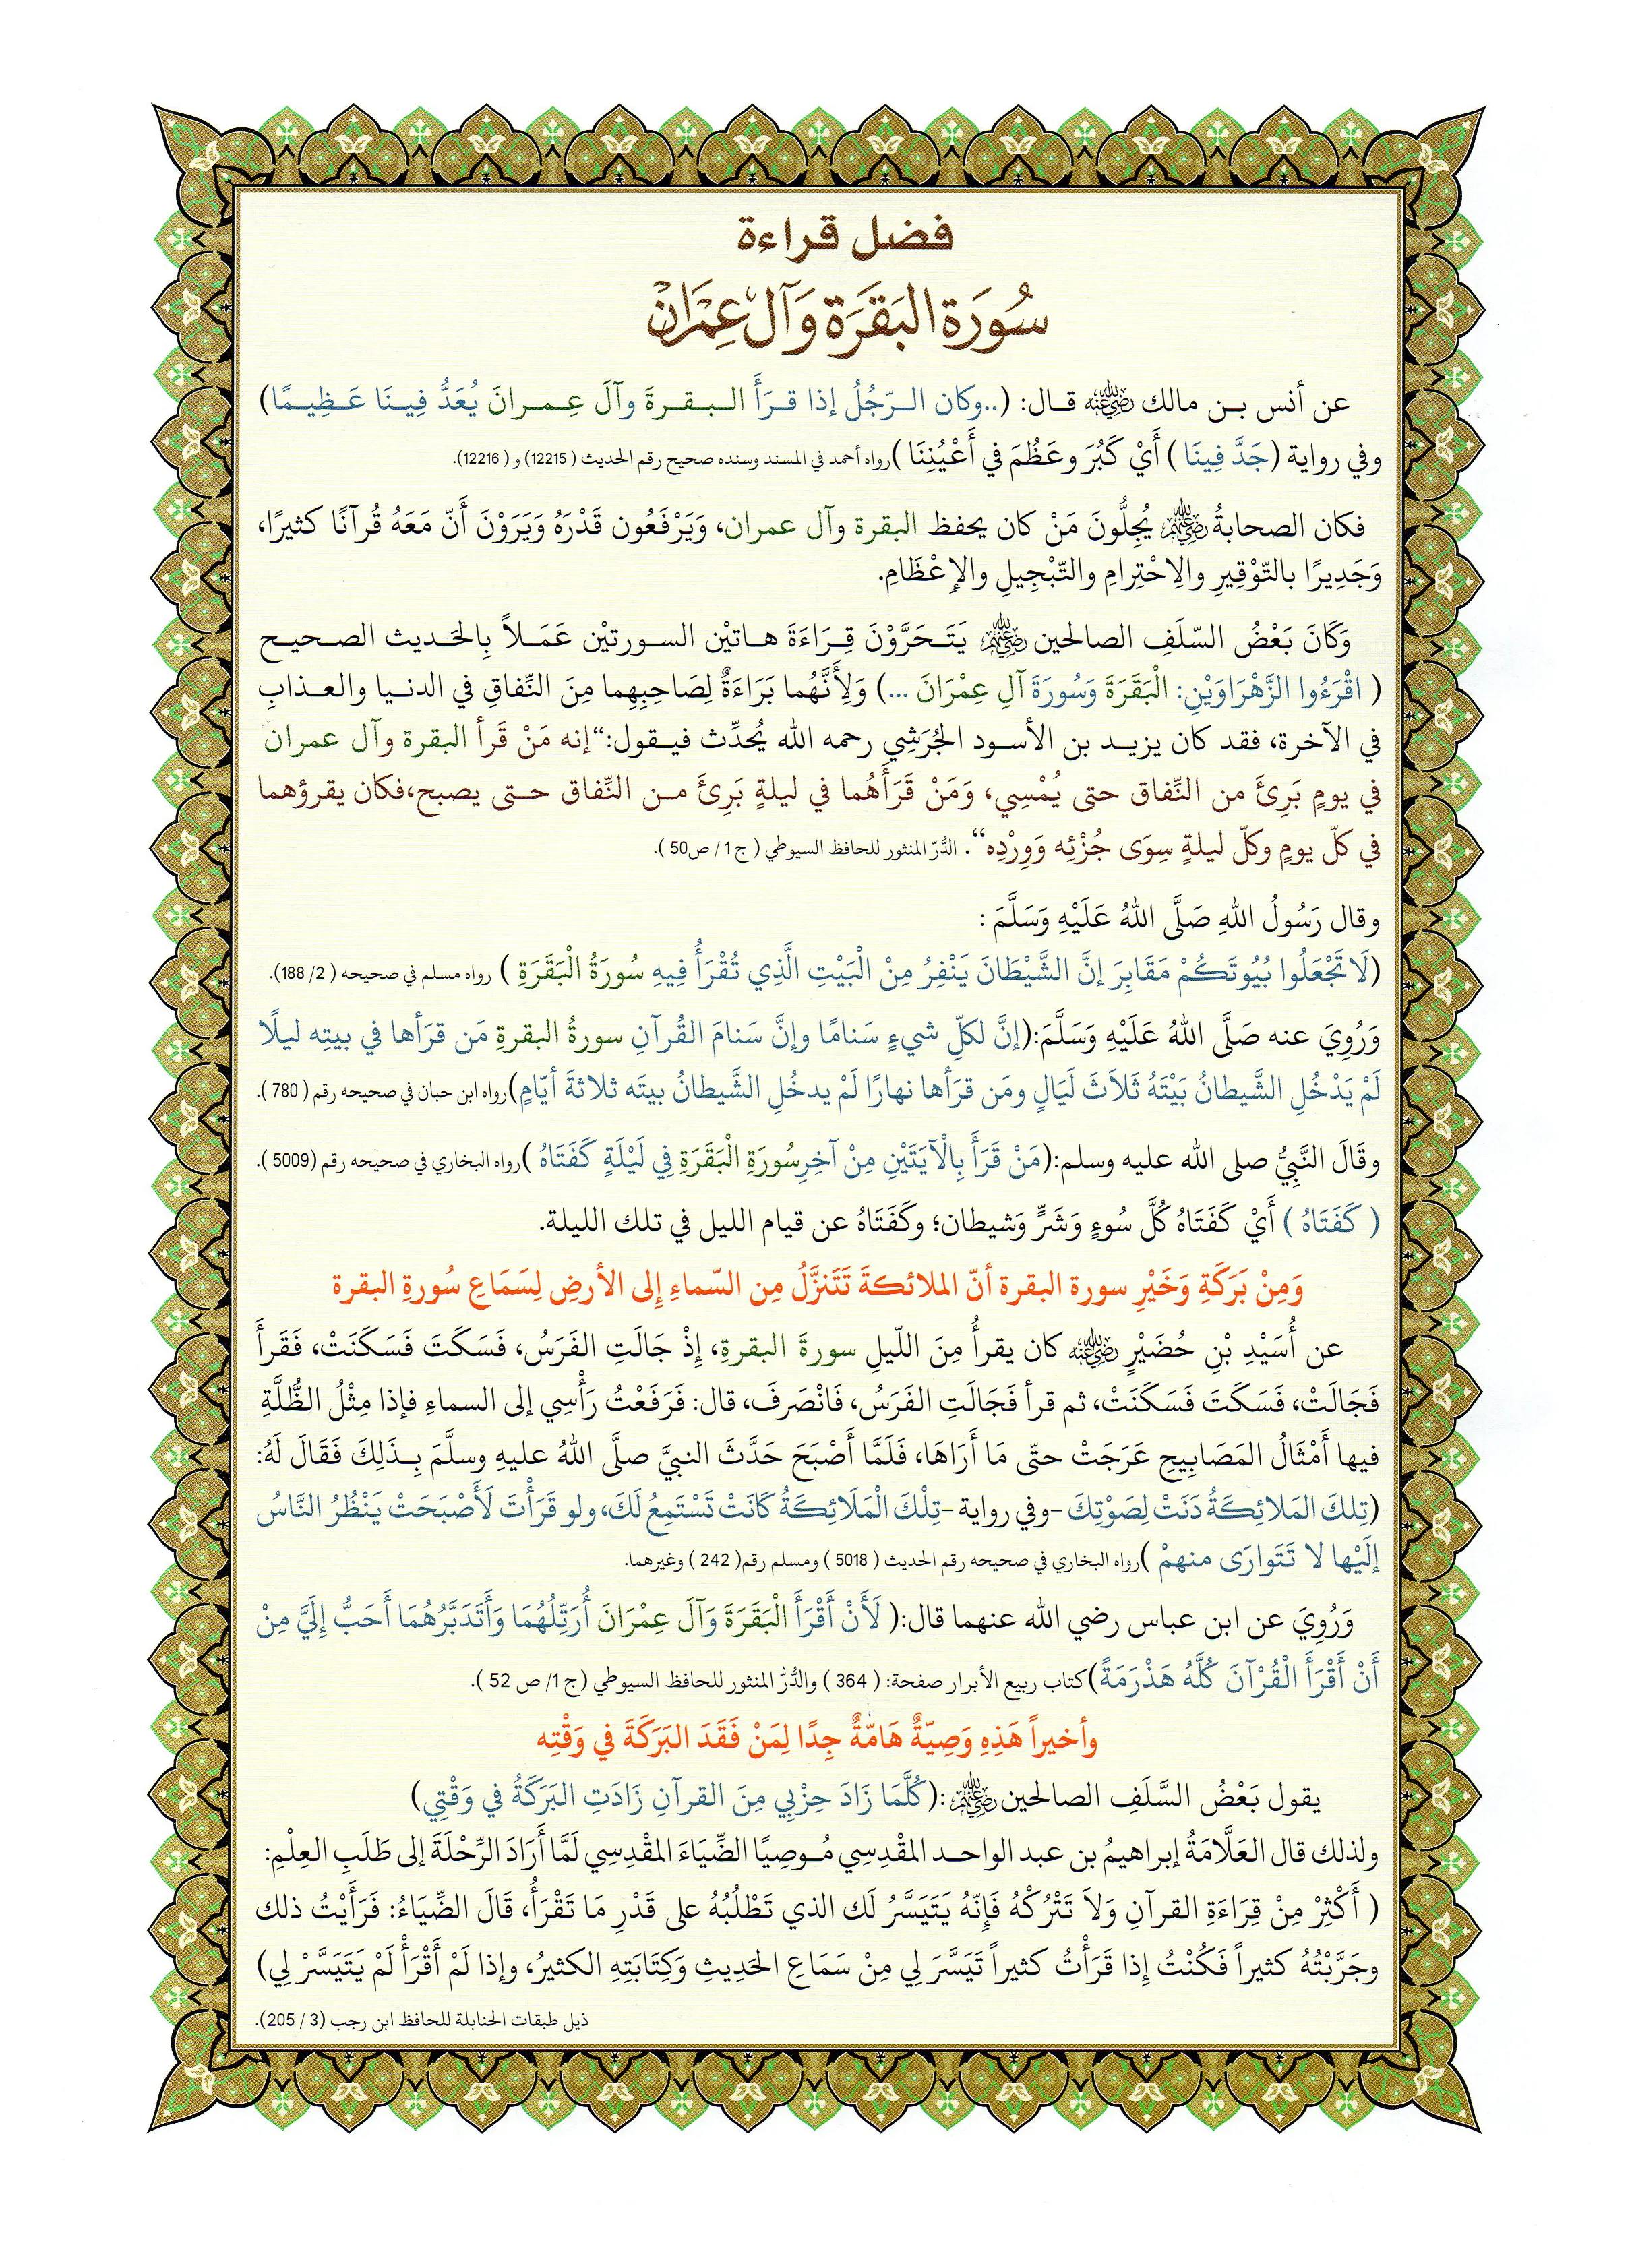 فضل قراءة
سُورَة البَقَرَة وَآل عِمْرَان
عن أنس بن مالك رضي الله عنه قال: (..وكان الرّجُلُ إذا قرَأَ البقرةَ وآلَ عِمرانَ يُعَدُّ فِينَا عَظِيمًا)
وفي رواية (جَدَّ فِينَا ) أَيْ كَبُرَ وعَظُمَ في أَعْيُنِنَا )رواه أحمد في المسند وسنده صحيح رقم الحديث ( 12215) و ( 12216).
فكان الصحابةُ رضي الله عنهم يُجِلُّونَ مَنْ كان يحفظ البقرة وآل عمران، وَيَرْفَعُون قَدْرَهُ وَيَرَوْنَ أَنّ مَعَهُ قُرآنًا كثيرًا،
وَجَدِيرًا بالتّوْقِيرِ والِاحْتِرامِ والتّبْجِيلِ والإِعْظَامِ.
وَكَانَ بَعْضُ السّلَفِ الصالحين رضي الله عنهم يَتَحَرَّوْنَ قِرَاءَةَ هاتيْن السورتيْن عَمَلاً بِالحَديث الصحيح
( اقْرَءُوا الزَّهْرَاوَيْنِ: الْبَقَرَةَ وَسُورَةَ آلِ عِمْرَانَ ...) وَلِأَنَّهُما بَرَاءَةٌ لِصَاحِبِهِما مِنَ النِّفاقِ في الدنيا والعذابِ
في الآخرة، فقد كان يزيد بن الأسود الجُرَشِي رحمه الله يُحدِّث فيقول:“إنه مَنْ قَرأ البقرة وآل عمران
في يومٍ بَرِئَ من النِّفاق حتى يُمْسِي، وَمَنْ قَرَأَهُما في ليلةٍ بَرِئَ من النِّفاق حتى يصبح،فكان يقرؤهما
في كلّ يومٍ وكلّ ليلةٍ سِوَى جُزْئِه وَوِرْدِه“. الدُّرّ المنثور للحافظ السيوطي ( ج1 / ص50 ).
وقال رَسُولُ اللهِ صَلَّى اللهُ عَلَيْهِ وَسَلَّمَ :
(لَا تَجْعَلُوا بُيُوتَكُمْ مَقَابِرَ إنَّ الشَّيْطَانَ يَنْفِرُ مِنْ الْبَيْتِ الَّذِي تُقْرَأُ فِيهِ سُورَةُ الْبَقَرَةِ ) رواه مسلم في صحيحه ( 2/ 188).
وَرُوِيَ عنه صَلَّى اللهُ عَلَيْهِ وَسَلَّمَ:(إنَّ لكلّ شيءٍ سَنامًا وإنَّ سَنامَ القُرآنِ سورةُ البقرةِ مَن قرَأها في بيتِه ليلًا
لَمْ يَدْخُلِ الشَّيطانُ بَيْتَهُ ثَلاَثَ لَيَالٍ ومَن قرَأها نهارًا لَمْ يدخُلِ الشَّيطانُ بيتَه ثلاثةَ أيّامٍ)رواه ابن حبان في صحيحه رقم ( 780 ).
وقَالَ النَّبِيُّ صلى الله عليه وسلم:(مَنْ قَرَأَ بِالْآيَتَيْنِ مِنْ آخِرِسُورَةِ الْبَقَرَةِ فِي لَيْلَةٍ كَفَتَاهُ )رواه البخاري في صحيحه رقم (5009 ).
( كَفَتَاهُ ) أَيْ كَفَتَاهُ كُلَّ سُوءٍ وَشَرٍّ وَشيطان؛ وكَفَتَاهُ عن قيام الليل في تلك الليلة.
وَمِنْ بَرَكَةِ وَخَيْرِ سورة البقرة أنّ الملائكةَ تَتَنزَّلُ مِن السّماءِ إِلى الأرضِ لِسَمَاعِ سُورةِ البقرة
عن أُسَيْدِ بْنِ حُضَيْرٍ رضي الله عنه كان يقرأُ مِنَ اللّيلِ سورةَ البقرةِ، إِذْ جَالَتِ الفَرَسُ، فَسَكَتَ فَسَكَنَتْ، فَقَرأَ
فَجَالَتْ، فَسَكَتَ فَسَكَنَتْ، ثم قرأ فَجَالَتِ الفَرَسُ، فَانْصَرفَ، قال: فَرَفَعْتُ رَأْسِي إلى السماءِ فإذا مِثْلُ الظُّلَّةِ
فيها أَمْثَالُ المَصَابِيحِ عَرَجَتْ حتّى مَا أَرَاهَا، فَلَمَّا أَصْبَحَ حَدَّثَ النبيَّ صلَّى اللهُ عليهِ وسلَّمَ بِذَلِكَ فَقَالَ لَهُ:
(تِلكَ المَلائِكَةُ دَنَتْ لِصَوْتِكَ -وفي رواية -تِلْكَ الْمَلَائِكَةُ كَانَتْ تَسْتَمِعُ لَكَ، ولو قَرَأْتَ لَأَصْبَحَتْ يَنْظُرُ النَّاسُ
إلَيْها لا تَتَوارَى منهمْ )رواه البخاري في صحيحه رقم الحديث ( 5018 ) ومسلم رقم( 242 ) وغيرهما.
وَرُوِيَ عن ابن عباس رضي الله عنهما قال:( لَأَنْ أَقْرَأَ الْبَقَرَةَ وَآلَ عِمْرَانَ أُرَتِّلُهُمَا وَأَتَدَبَّرُهُمَا أَحَبُّ إِلَيَّ مِنْ
أَنْ أَقْرَأَ الْقُرْآنَ كُلَّهُ هَذْرَمَةً)كتاب ربيع الأبرار صفحة: ( 364 ) والدُّرّ المنثور للحافظ السيوطي (ج 1/ ص 52 ).
وأخيراً هَذِهِ وَصِيّةٌ هَامّةٌ جِدًا لِمَنْ فَقَدَ البَرَكَةَ في وَقْتِه
يقول بَعْضُ السَّلَفِ الصالحين رضي الله عنهم :(كُلَّمَا زَادَ حِزْبِي مِنَ القرآنِ زَادَتِ البَرَكَةُ في وَقْتِي)
ولذلك قال العَلَّامَةُ إبراهيمُ بن عبد الواحد المقْدِسِي مُوصِيًا الضِّيَاءَ المقْدِسِي لَمَّا أَرَادَ الرِّحْلَةَ إلى طَلَبِ العِلْمِ:
( أَكْثِرْ مِنْ قِرَاءَةِ القرآنِ وَلاَ تَتْرُكْهُ فَإِنّهُ يَتَيَسَّرُ لَك الذي تَطْلُبُهُ على قَدْرِ مَا تَقْرَأُ، قَالَ الضِّيَاءُ: فَرَأَيْتُ ذلك
وجَرَّبْتُهُ كثيراً فَكُنْتُ إِذا قَرَأْتُ كثيراً تَيَسَّرَ لِي مِنْ سَمَاعِ الحَدِيثِ وَكِتَابَتِهِ الكثيرُ، وإذا لَمْ أَقْرَأْ لَمْ يَتَيَسَّرْ لِي)
ذيل طبقات الحنابلة للحافظ ابن رجب (3 / 205).